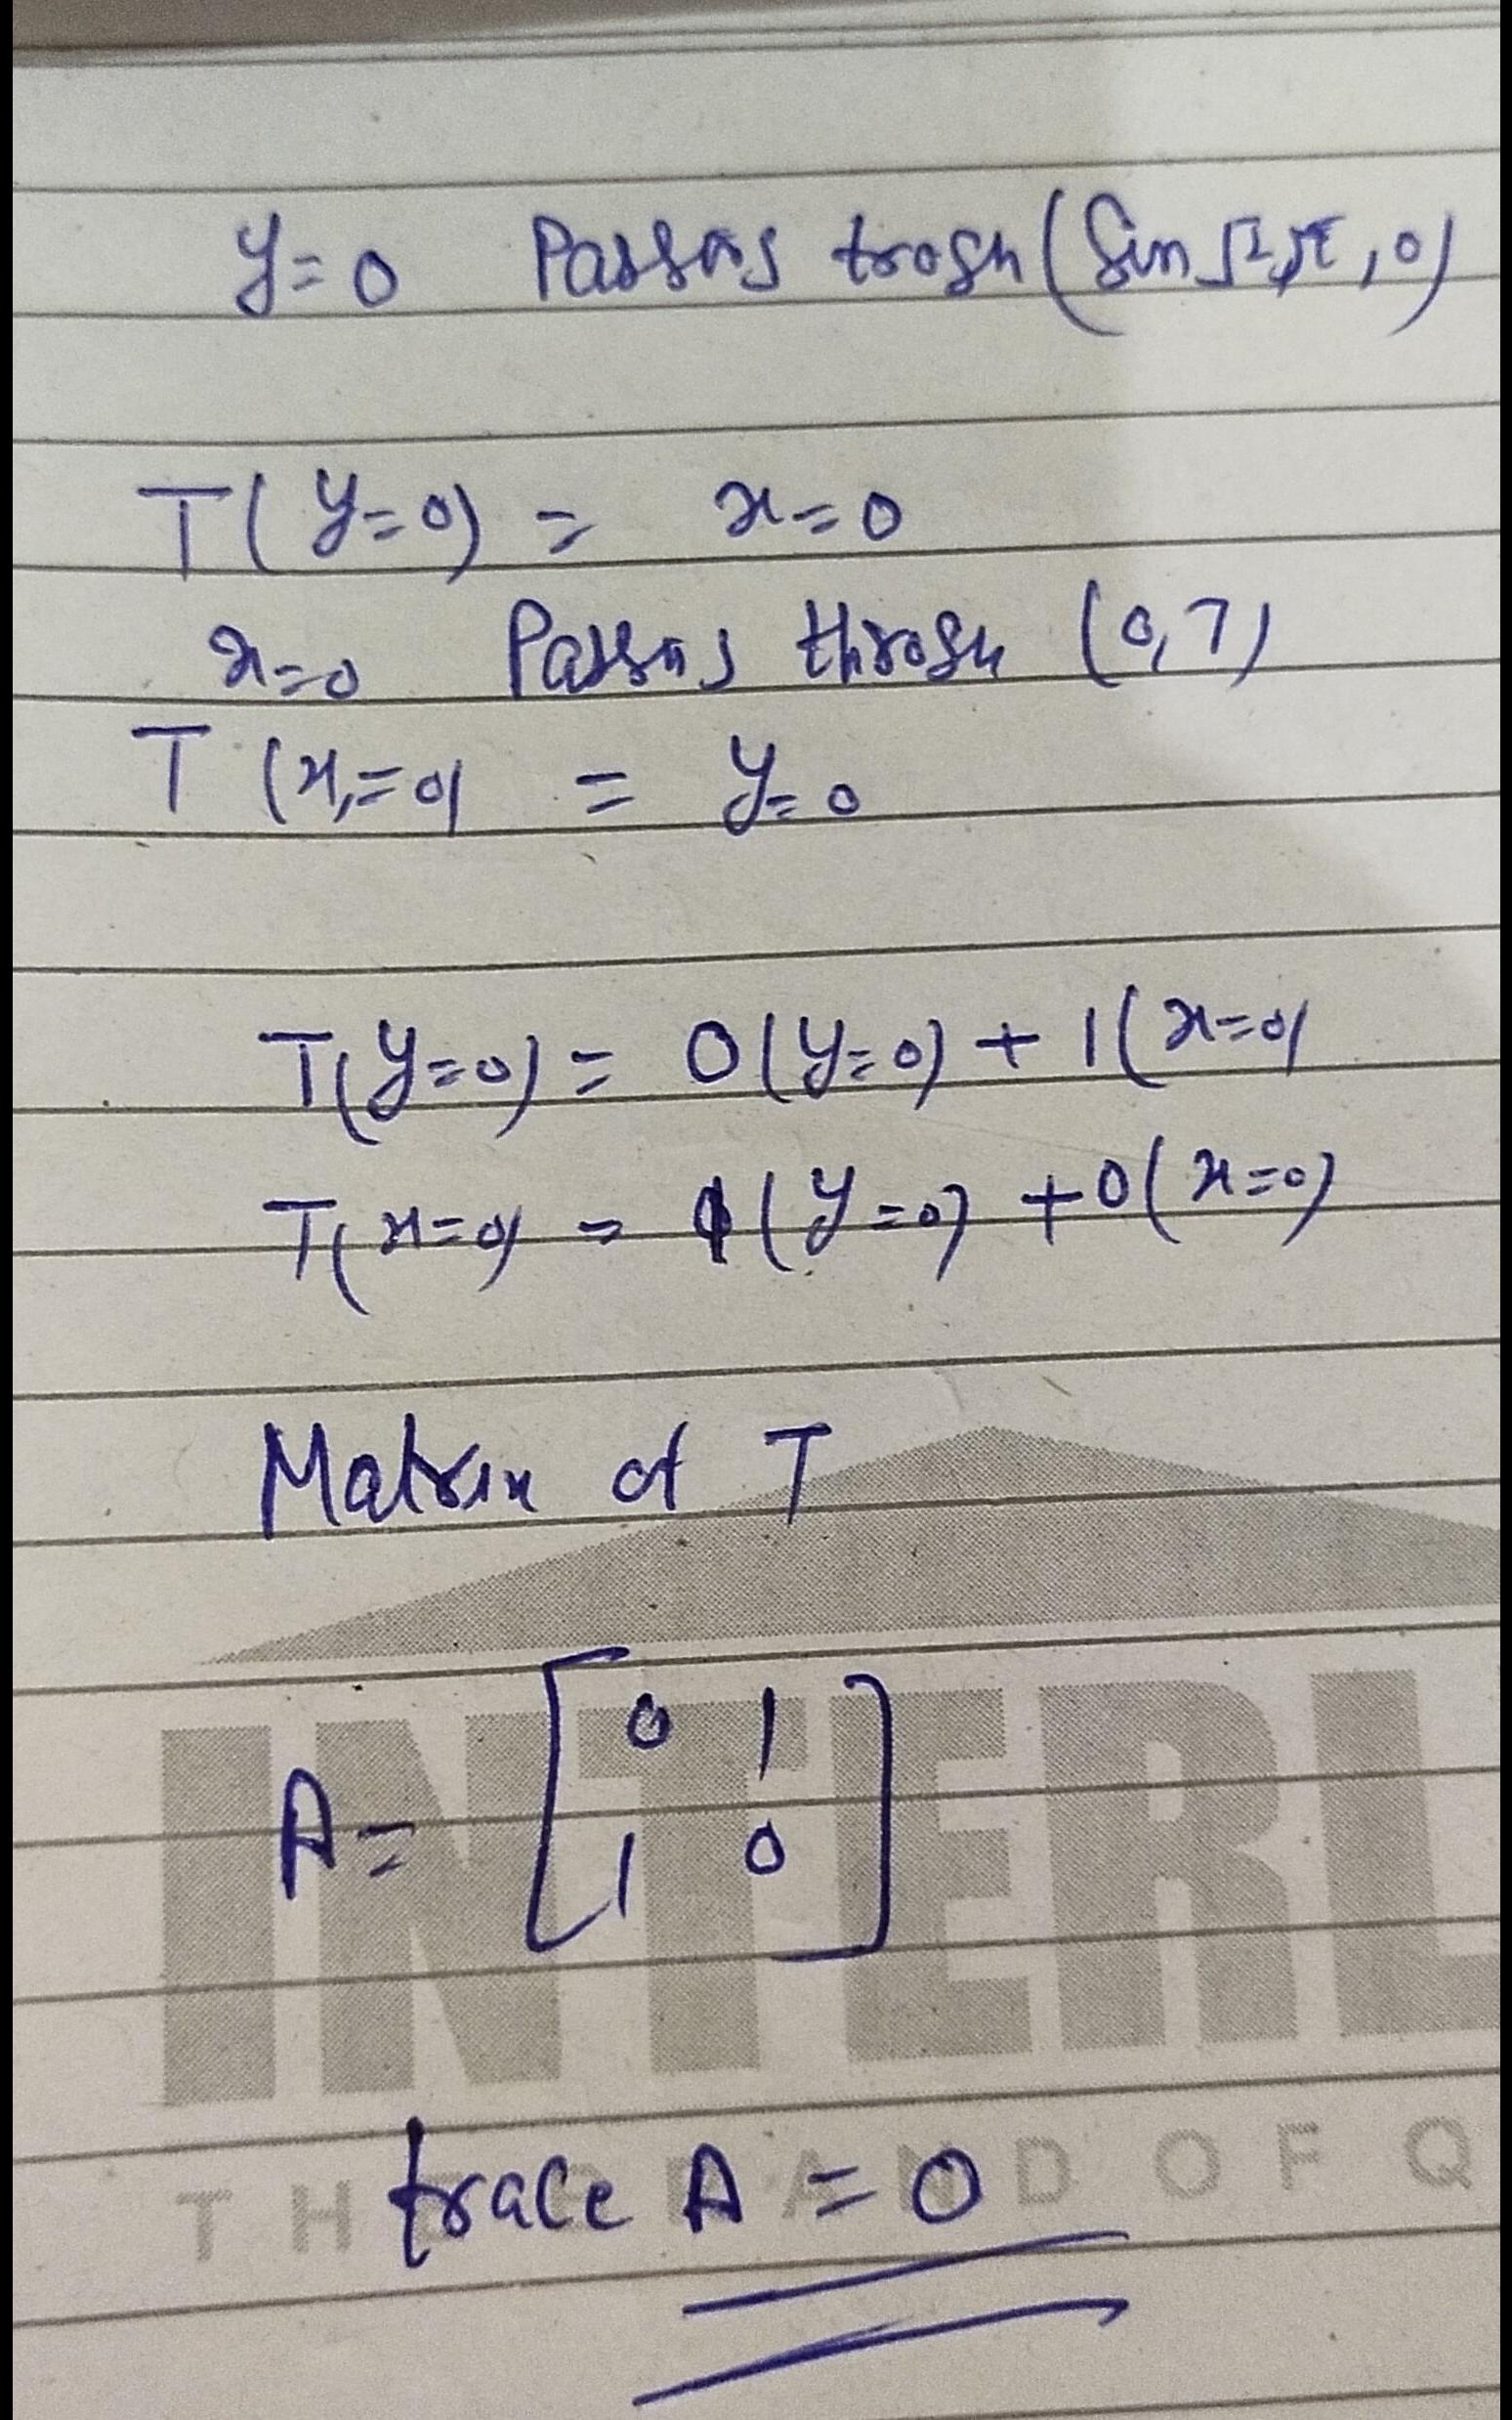 y=0 Passes trogh (Sin √2, , 0)
T( y=0) = x=0
x=0 Passes throgh (0,7)
T (x,=0) = y=0
T(y=0) = 0(y=0) + 1(x=0)
T(x=0) = 1(y=0) +0(x=0)
Matrix of T
A= [0 1
1 0]
INTERL
THE BRAND OF Q
trace A = 0